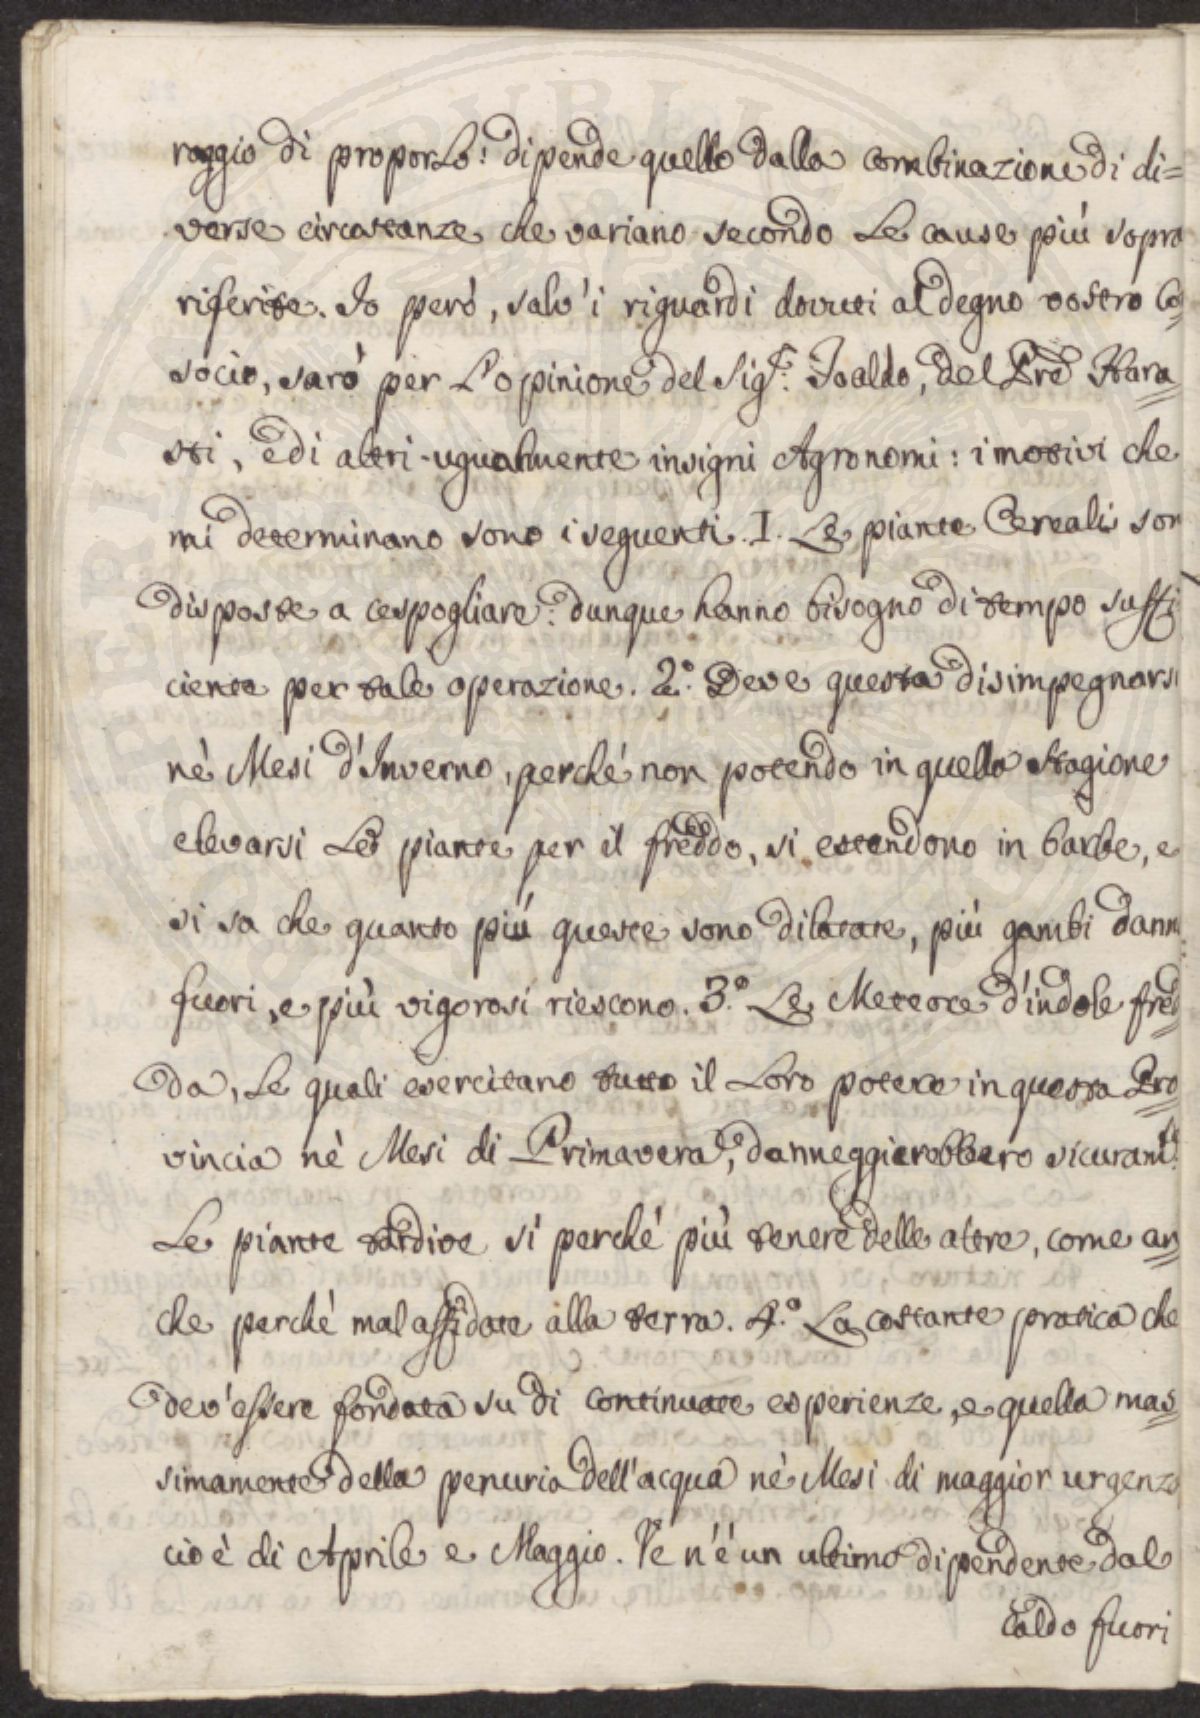 raggio di proporlo: dipende quello dalla combinazione di di=
verse circostanze che variano secondo le cause più sopra
riferite. Io però, salv'i riguardi dovuti al degno vostro Co=
socio, sarò per l'opinione del Sigr. Toaldo, del Pre Hara=
sti, e di altri ugualmente insigni Agronomi: i motivi che
mi determinano sono i seguenti. I. Le piante Cereali son
disposte a cespogliare: dunque hanno bisogno di tempo suffi
ciente per tale operazione. 2.° Deve questa disimpegnarsi
nè Mesi d'Inverno, perché non potendo in quella stagione
elevarsi le piante per il freddo, si estendono in barbe, e
si sa che quanto più queste sono dilatate, più gambi dann
fuori, e più vigorosi riescono. 3.° Le Meteore d'indole fred=
da, le quali esercitano tutto il loro potere in questa Pro=
vincia nè Mesi di Primavera, danneggierebbero sicuramte.
Le piante tardive sì perché più tenere delle altre, come an=
che perchè mal affidate alla terra. 4.° La costante pratica che
dev'essere fondata su di continuate esperienze, e quella mas=
simamente della penuria dell'acqua nè Mesi di maggior urgenza
cioè di Aprile e Maggio. Ve n'è un ultimo dipendente dal
caldo fuori